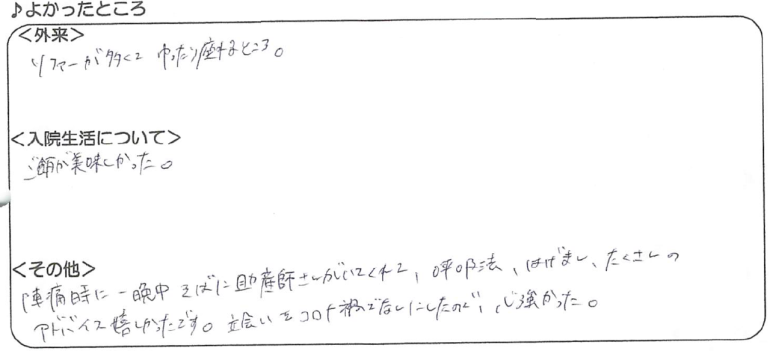 ♪よかったところ
＜外来＞
ソファーが多くて ゆったり座れるところ。
＜入院生活について＞
ご飯が美味しかった。
＜その他＞
陣痛時に一晩中そばに助産師さんがいてくれて、呼吸法、はげまし、たくさんの
アドバイス嬉しかったです。立会いをコロナ禍でなしにしたので、心強かった。